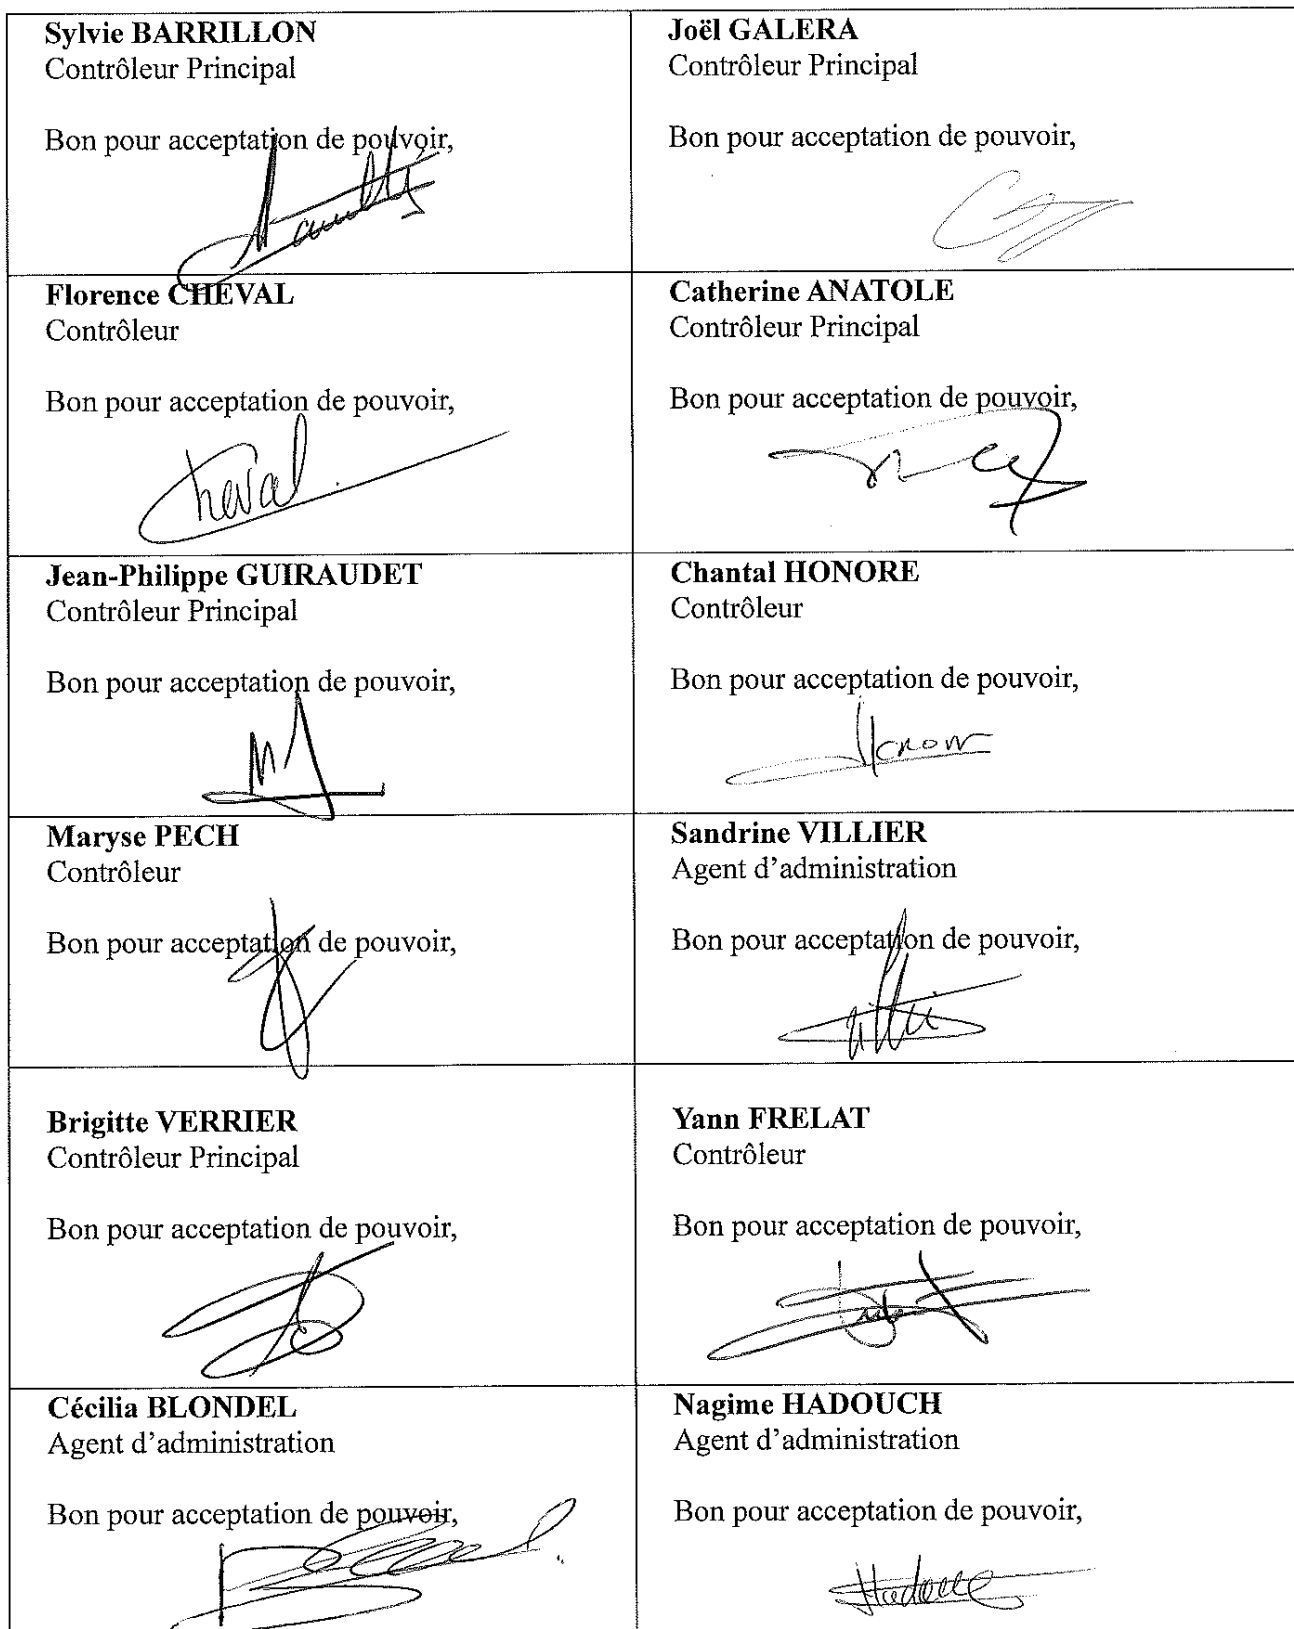 Sylvie BARRILLON
Contrôleur Principal
Bon pour acceptation de pouvoir,
Joël GALERA
Contrôleur Principal
Bon pour acceptation de pouvoir,
Florence CHEVAL
Contrôleur
Bon pour acceptation de pouvoir,
Cheval
Catherine ANATOLE
Contrôleur Principal
Bon pour acceptation de pouvoir,
Jean-Philippe GUIRAUDET
Contrôleur Principal
Bon pour acceptation de pouvoir,
Chantal HONORE
Contrôleur
Bon pour acceptation de pouvoir,
Maryse PECH
Contrôleur
Bon pour acceptation de pouvoir,
Sandrine VILLIER
Agent d’administration
Bon pour acceptation de pouvoir,
Brigitte VERRIER
Contrôleur Principal
Bon pour acceptation de pouvoir,
Yann FRELAT
Contrôleur
Bon pour acceptation de pouvoir,
Cécilia BLONDEL
Agent d’administration
Bon pour acceptation de pouvoir,
Nagime HADOUCH
Agent d’administration
Bon pour acceptation de pouvoir,